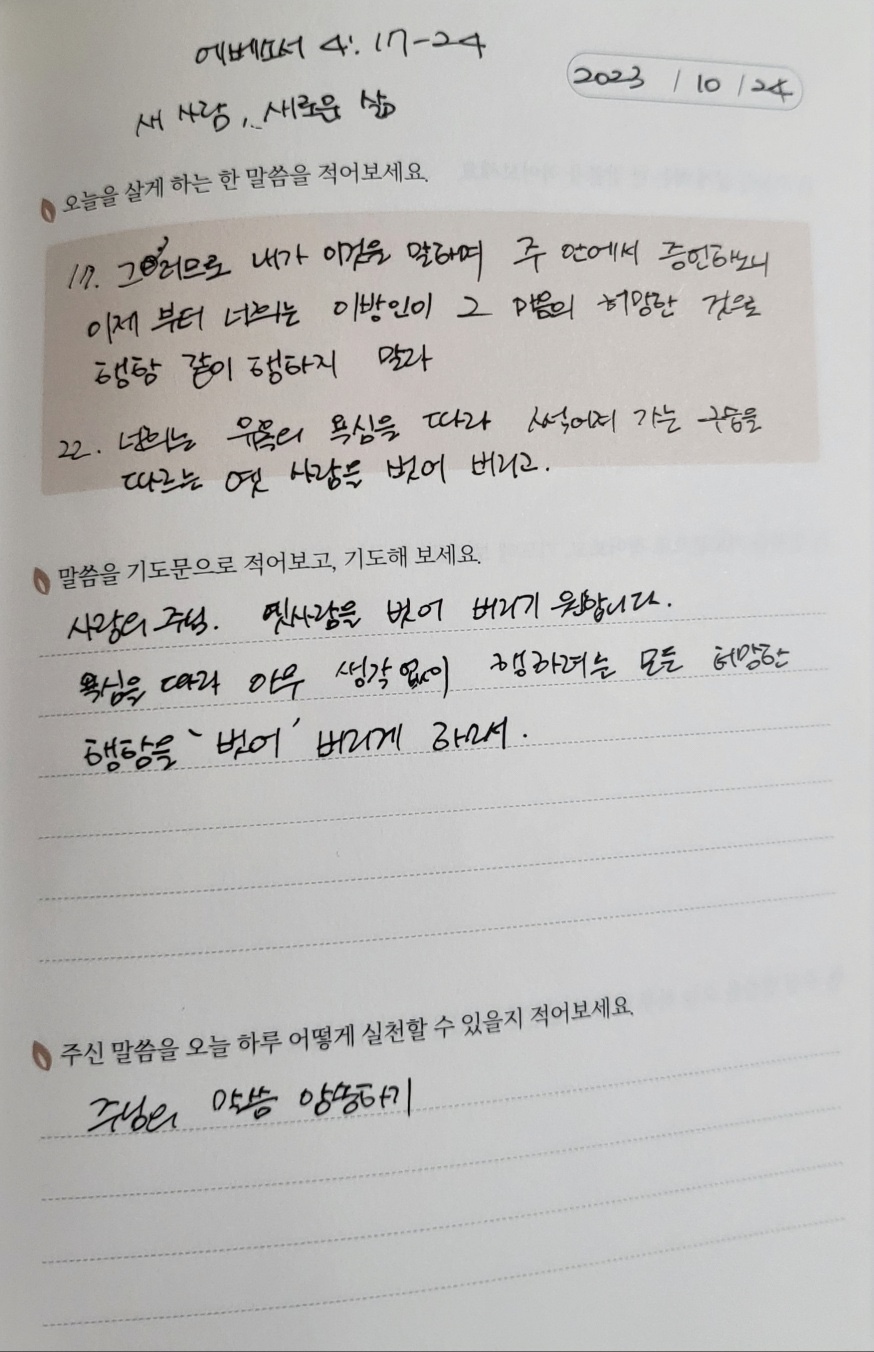 에베소서 4: 17-24
2023 / 10 / 24
새 사람, 새로운 삶
오늘을 살게 하는 한 말씀을 적어보세요.
17. 그러므로 내가 이것을 말하며 주 안에서 증언하노니
이제 부터 너희는 이방인이 그 마음의 허망한 것으로
행함 같이 행하지 말라
22. 너희는 유혹의 욕심을 따라 썩어져 가는 구습을
따르는 옛 사람을 벗어 버리고.
말씀을 기도문으로 적어보고, 기도해 보세요.
사랑의 주님. 옛사람을 벗어 버리기 원합니다.
욕심을 따라 아무 생각없이 행하려는 모든 허망한
행함을 '벗어' 버리게 하소서.
주신 말씀을 오늘 하루 어떻게 실천할 수 있을지 적어보세요.
주님의 말씀 암송하기